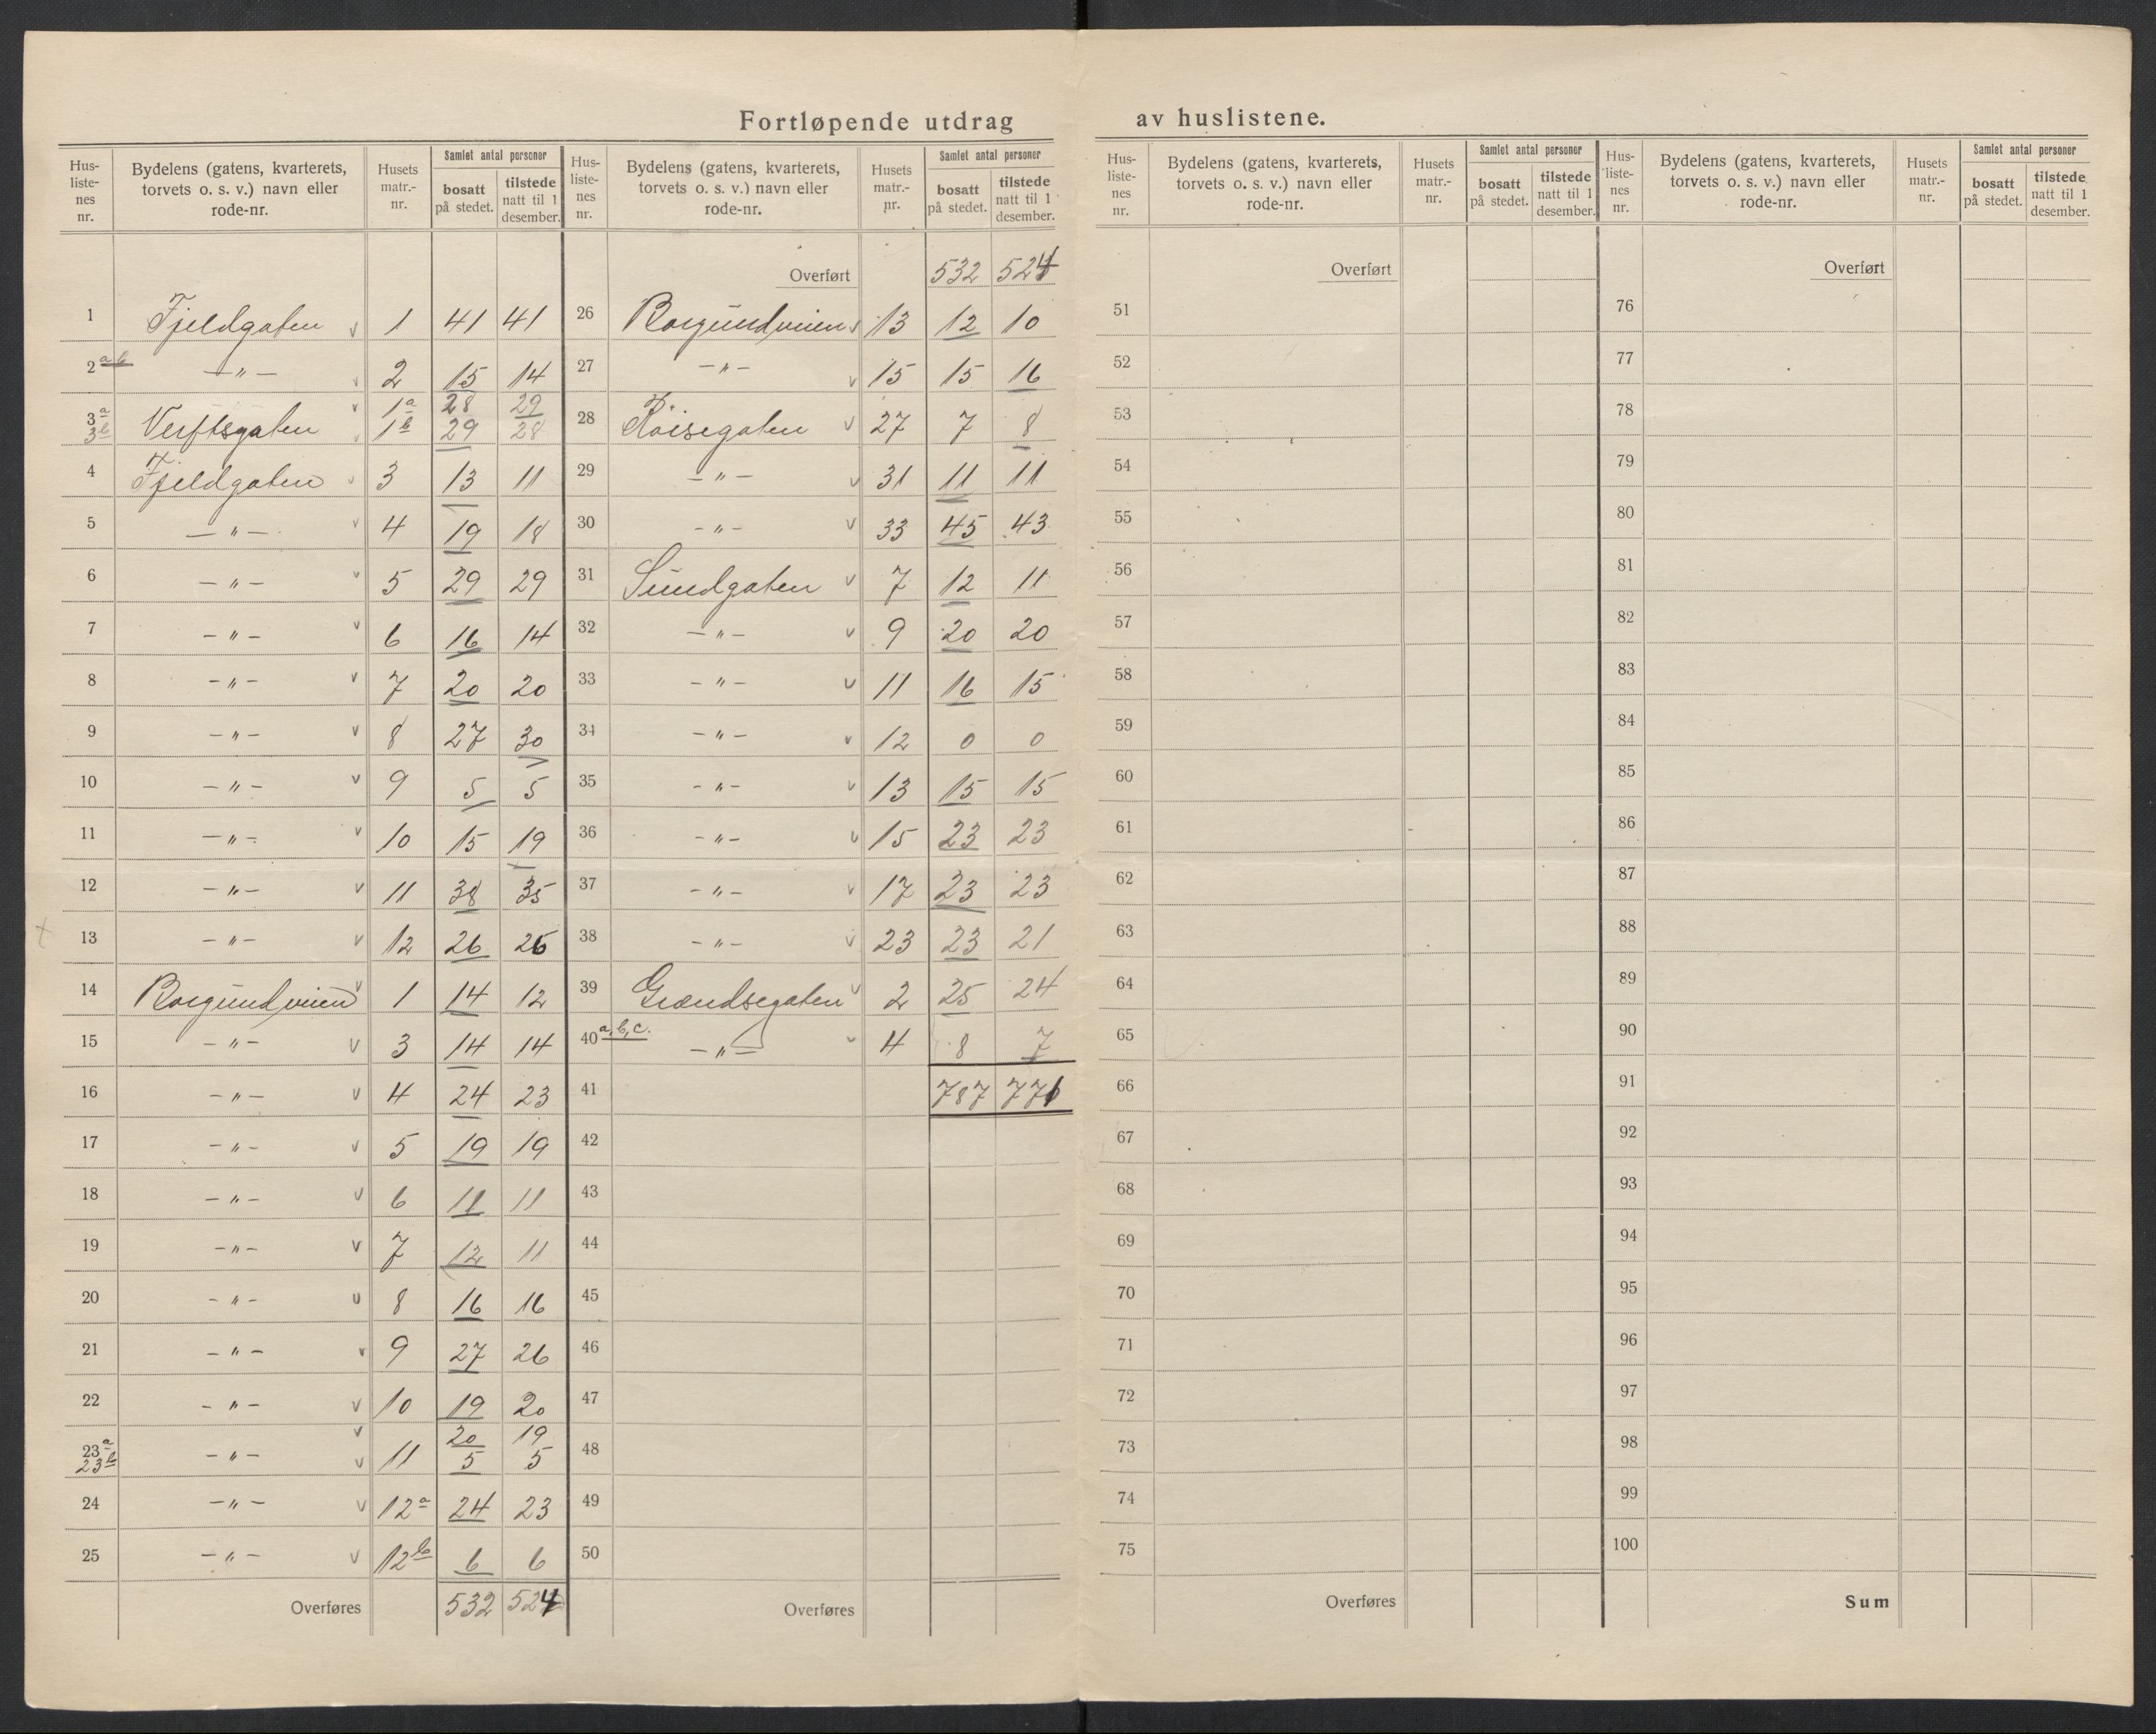 Fortløpende utdrag av huslistene.
Hus-liste-nes nr. | Bydelens (gatens, kvarterets, torvets o. s. v.) navn eller rode-nr. | Husets matr.-nr. | Samlet antal personer bosatt på stedet. | tilstede natt til 1 desember.
1 Fjeldgaten v 1 41 41
2 a b — " — v 2 15 14
3 a Verftsgaten v 1 a 28 29
3 b v 1 b 29 28
4 Fjeldgaten v 3 13 11
5 — " — v 4 19 18
6 — " — v 5 29 29
7 — " — v 6 16 14
8 — " — v 7 20 20
9 — " — v 8 27 30
10 — " — v 9 5 5
11 — " — v 10 15 19
12 — " — v 11 38 35
13 — " — v 12 26 26
14 Borgundveien v 1 14 12
15 — " — v 3 14 14
16 — " — v 4 24 23
17 — " — v 5 19 19
18 — " — v 6 11 11
19 — " — v 7 12 11
20 — " — v 8 16 16
21 — " — v 9 27 26
22 — " — v 10 19 20
23 a v 20 19
23 b — " — v 11 5 5
24 — " — v 12 a 24 23
25 — " — v 12 b 6 6
Overføres 532 524
Hus-liste-nes nr. | Bydelens (gatens, kvarterets, torvets o. s. v.) navn eller rode-nr. | Husets matr.-nr. | Samlet antal personer bosatt på stedet. | tilstede natt til 1 desember.
Overført 532 524
26 Borgundveien v 13 12 10
27 — " — v 15 15 16
28 Röisegaten v 27 7 8
29 — " — v 31 11 11
30 — " — v 33 45 43
31 Sundgaten v 7 12 11
32 — " — v 9 20 20
33 — " — v 11 16 15
34 — " — v 12 0 0
35 — " — v 13 15 15
36 — " — v 15 23 23
37 — " — v 17 23 23
38 — " — v 23 23 21
39 Grændsegaten v 2 25 24
40 a, b, c. — " — v 4 8 7
41 787 771
42
43
44
45
46
47
48
49
50
Overføres
Hus-liste-nes nr. | Bydelens (gatens, kvarterets, torvets o. s. v.) navn eller rode-nr. | Husets matr.-nr. | Samlet antal personer bosatt på stedet. | tilstede natt til 1 desember.
Overført
51
52
53
54
55
56
57
58
59
60
61
62
63
64
65
66
67
68
69
70
71
72
73
74
75
Overføres
Hus-liste-nes nr. | Bydelens (gatens, kvarterets, torvets o. s. v.) navn eller rode-nr. | Husets matr.-nr. | Samlet antal personer bosatt på stedet. | tilstede natt til 1 desember.
Overført
76
77
78
79
80
81
82
83
84
85
86
87
88
89
90
91
92
93
94
95
96
97
98
99
100
Sum